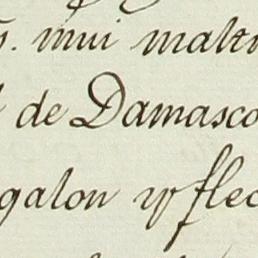 mui maltr
de Damasco
galon y flec